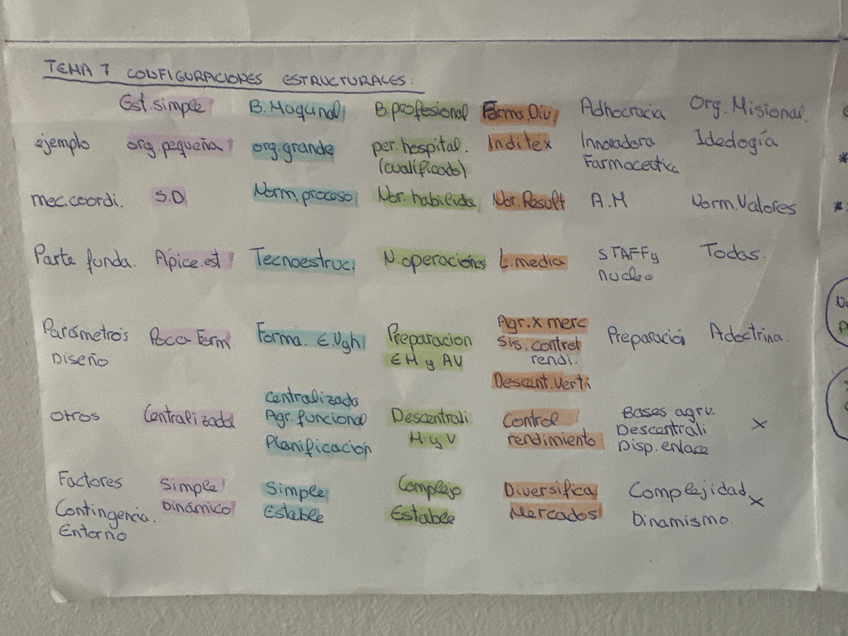 TEMA 7 CONFIGURACIONES ESTRUCTURALES:
Est.simple B.Maquinal B.profesional Forma.Div Adhocracia Org.Misional.
ejemplo org.pequeña org.grande per.hospital. Inditex Innovadora Idedogía
(cualificado) Farmaceutica
mec.coordi. S.D Norm.proceso Nor.habilida Nor.Result A.M Norm.Valores
Parte funda. Apice.est Tecnoestruc. N.operaciones L.media STAFF y Todas.
nucleo
Parámetros Poca Form Forma. E.Vgh Preparacion Agr.x merc Preparació Adoctrina.
Diseño EH y AV Sis.control
rendi.
Descent.verti
centralizado
otros Centralizada Agr.funcional Descentrali Control Bases agru. x
Planificacion H y V rendimiento Descentrali
Disp.enlace
Factores Simple Simple Complejo Diversifica Complejidad x
Contingencia. Dinámico Estable Estable Mercados Dinamismo.
Entorno